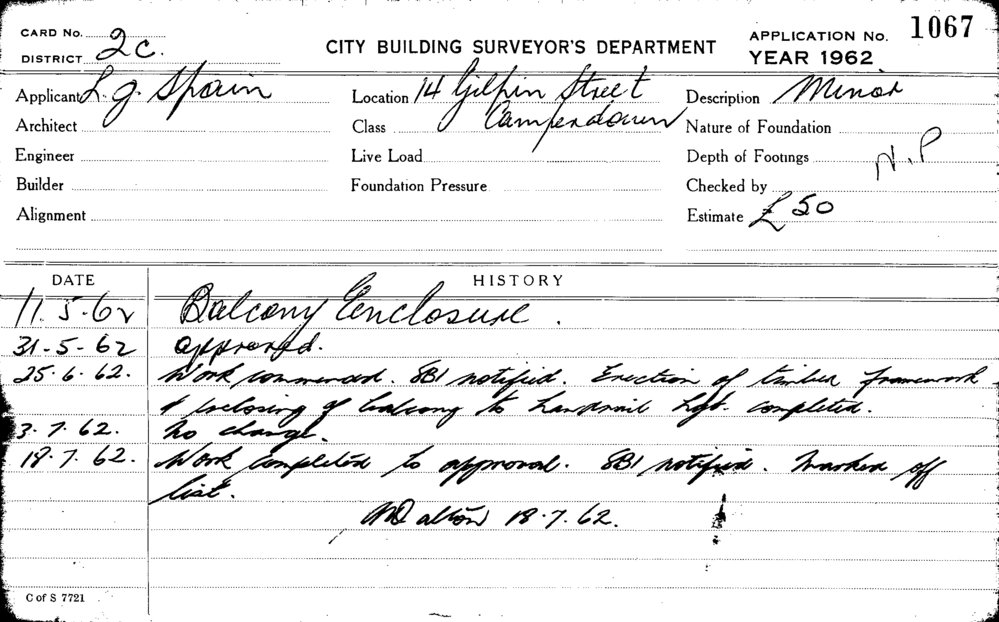 CARD No.
DISTRICT 2C.
CITY BUILDING SURVEYOR'S DEPARTMENT
APPLICATION No. 1067
YEAR 1962
Applicant L. G. Spain
Location 14 Gilpin Street
Description Minor
Architect
Class Camperdown
Nature of Foundation
Engineer
Live Load
Depth of Footings N.P
Builder
Foundation Pressure
Checked by
Alignment
Estimate £50
DATE HISTORY
11.5-62 Balcony Enclosure.
31-5-62 approved.
25.6.62. Work commenced. SBI notified. Erection of timber framework
& enclosing of balcony to handrail hgt. completed.
3.7.62. No change.
18.7.62. Work completed to approval. SBI notified. Marked off
list.
Dalton 18.7.62.
C of S 7721